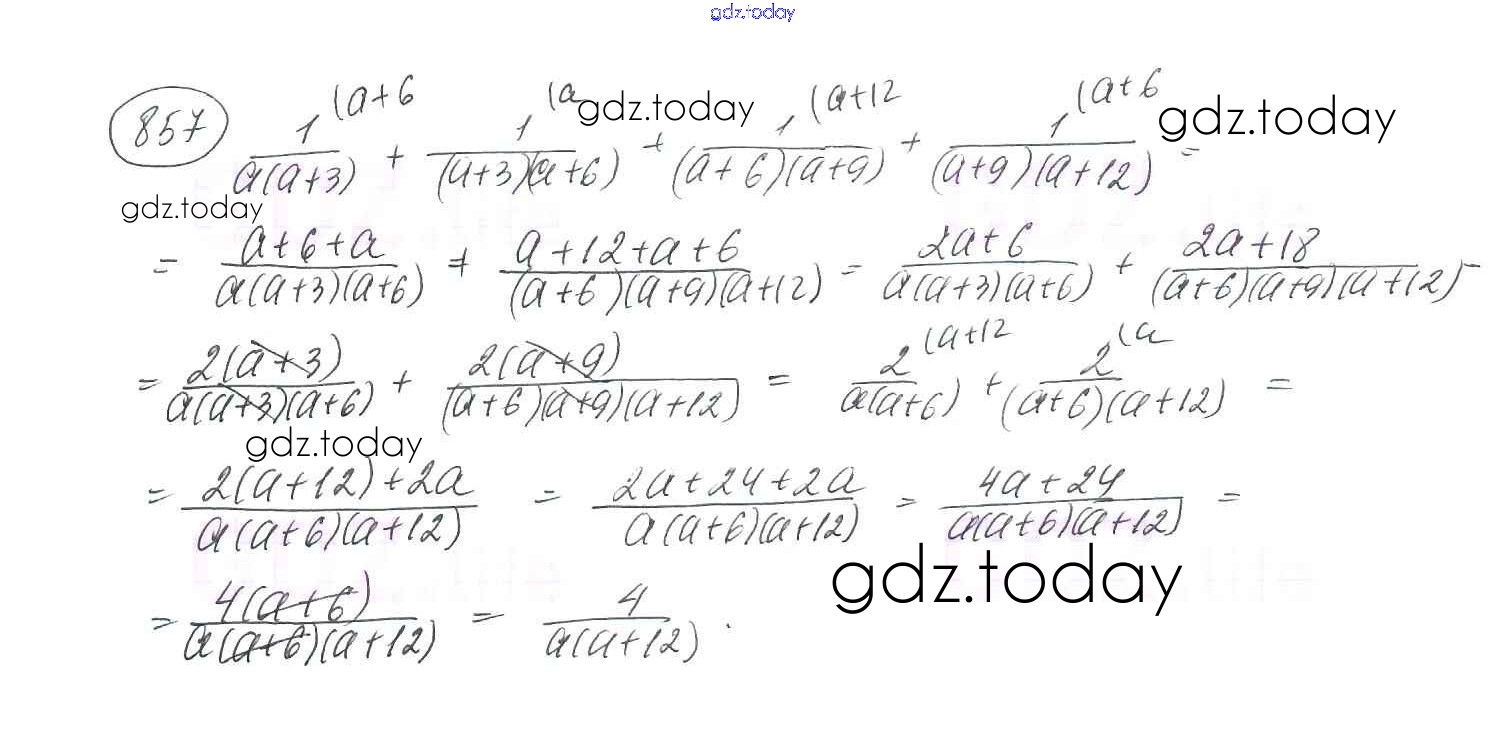 gdz.today
857 1/(a(a+3)) (a+6 + 1/((a+3)(a+6)) (a + 1/((a+6)(a+9)) (a+12 + 1/((a+9)(a+12)) (a+6 =
gdz.today gdz.today
gdz.today
= (a+6+a)/(a(a+3)(a+6)) + (a+12+a+6)/((a+6)(a+9)(a+12)) = (2a+6)/(a(a+3)(a+6)) + (2a+18)/((a+6)(a+9)(a+12)) =
= 2(a+3)/(a(a+3)(a+6)) + 2(a+9)/((a+6)(a+9)(a+12)) = 2/(a(a+6)) (a+12 + 2/((a+6)(a+12)) (a =
gdz.today
= (2(a+12)+2a)/(a(a+6)(a+12)) = (2a+24+2a)/(a(a+6)(a+12)) = (4a+24)/(a(a+6)(a+12)) =
gdz.today
= 4(a+6)/(a(a+6)(a+12)) = 4/(a(a+12)) .